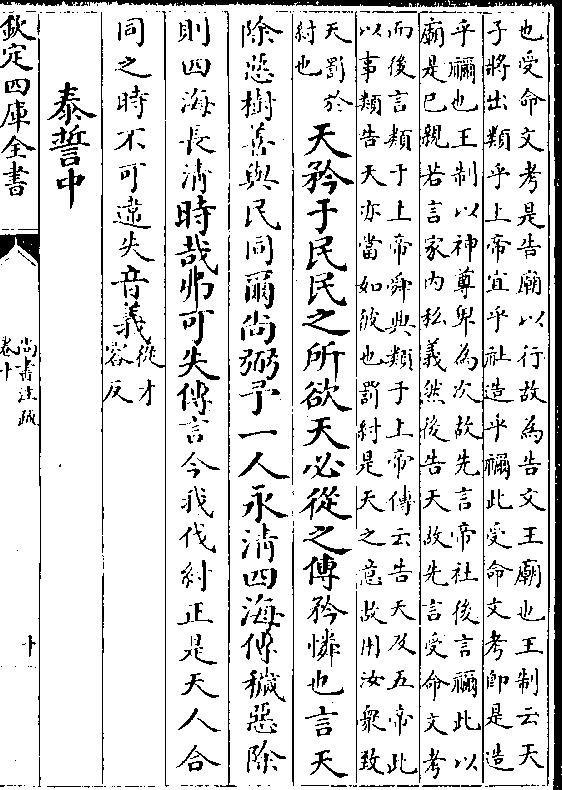 也受命文考是告廟以行故為告文王廟也王制云天
子將出類乎上帝宜乎社造乎禰此受命文考即是造
乎禰也王制以神尊卑為次故先言帝社後言禰此以
廟是已親若言家内私義然後告天故先言受命文考
而後言類于上帝舜典類于上帝傳云告天及五帝此
以事類告天亦當如彼也罰紂是天之意故用汝衆致
天罰於
紂也
天矜于民民之所欲天必從之傳矜憐也言天
除惡樹善與民同爾尚弼予一人永清四海傳穢惡除
則四海長清時哉弗可失傳言今我伐紂正是天人合
同之時不可違失音義
從才
容反
泰誓中
欽定四庫全書
尚書注疏
卷十
十